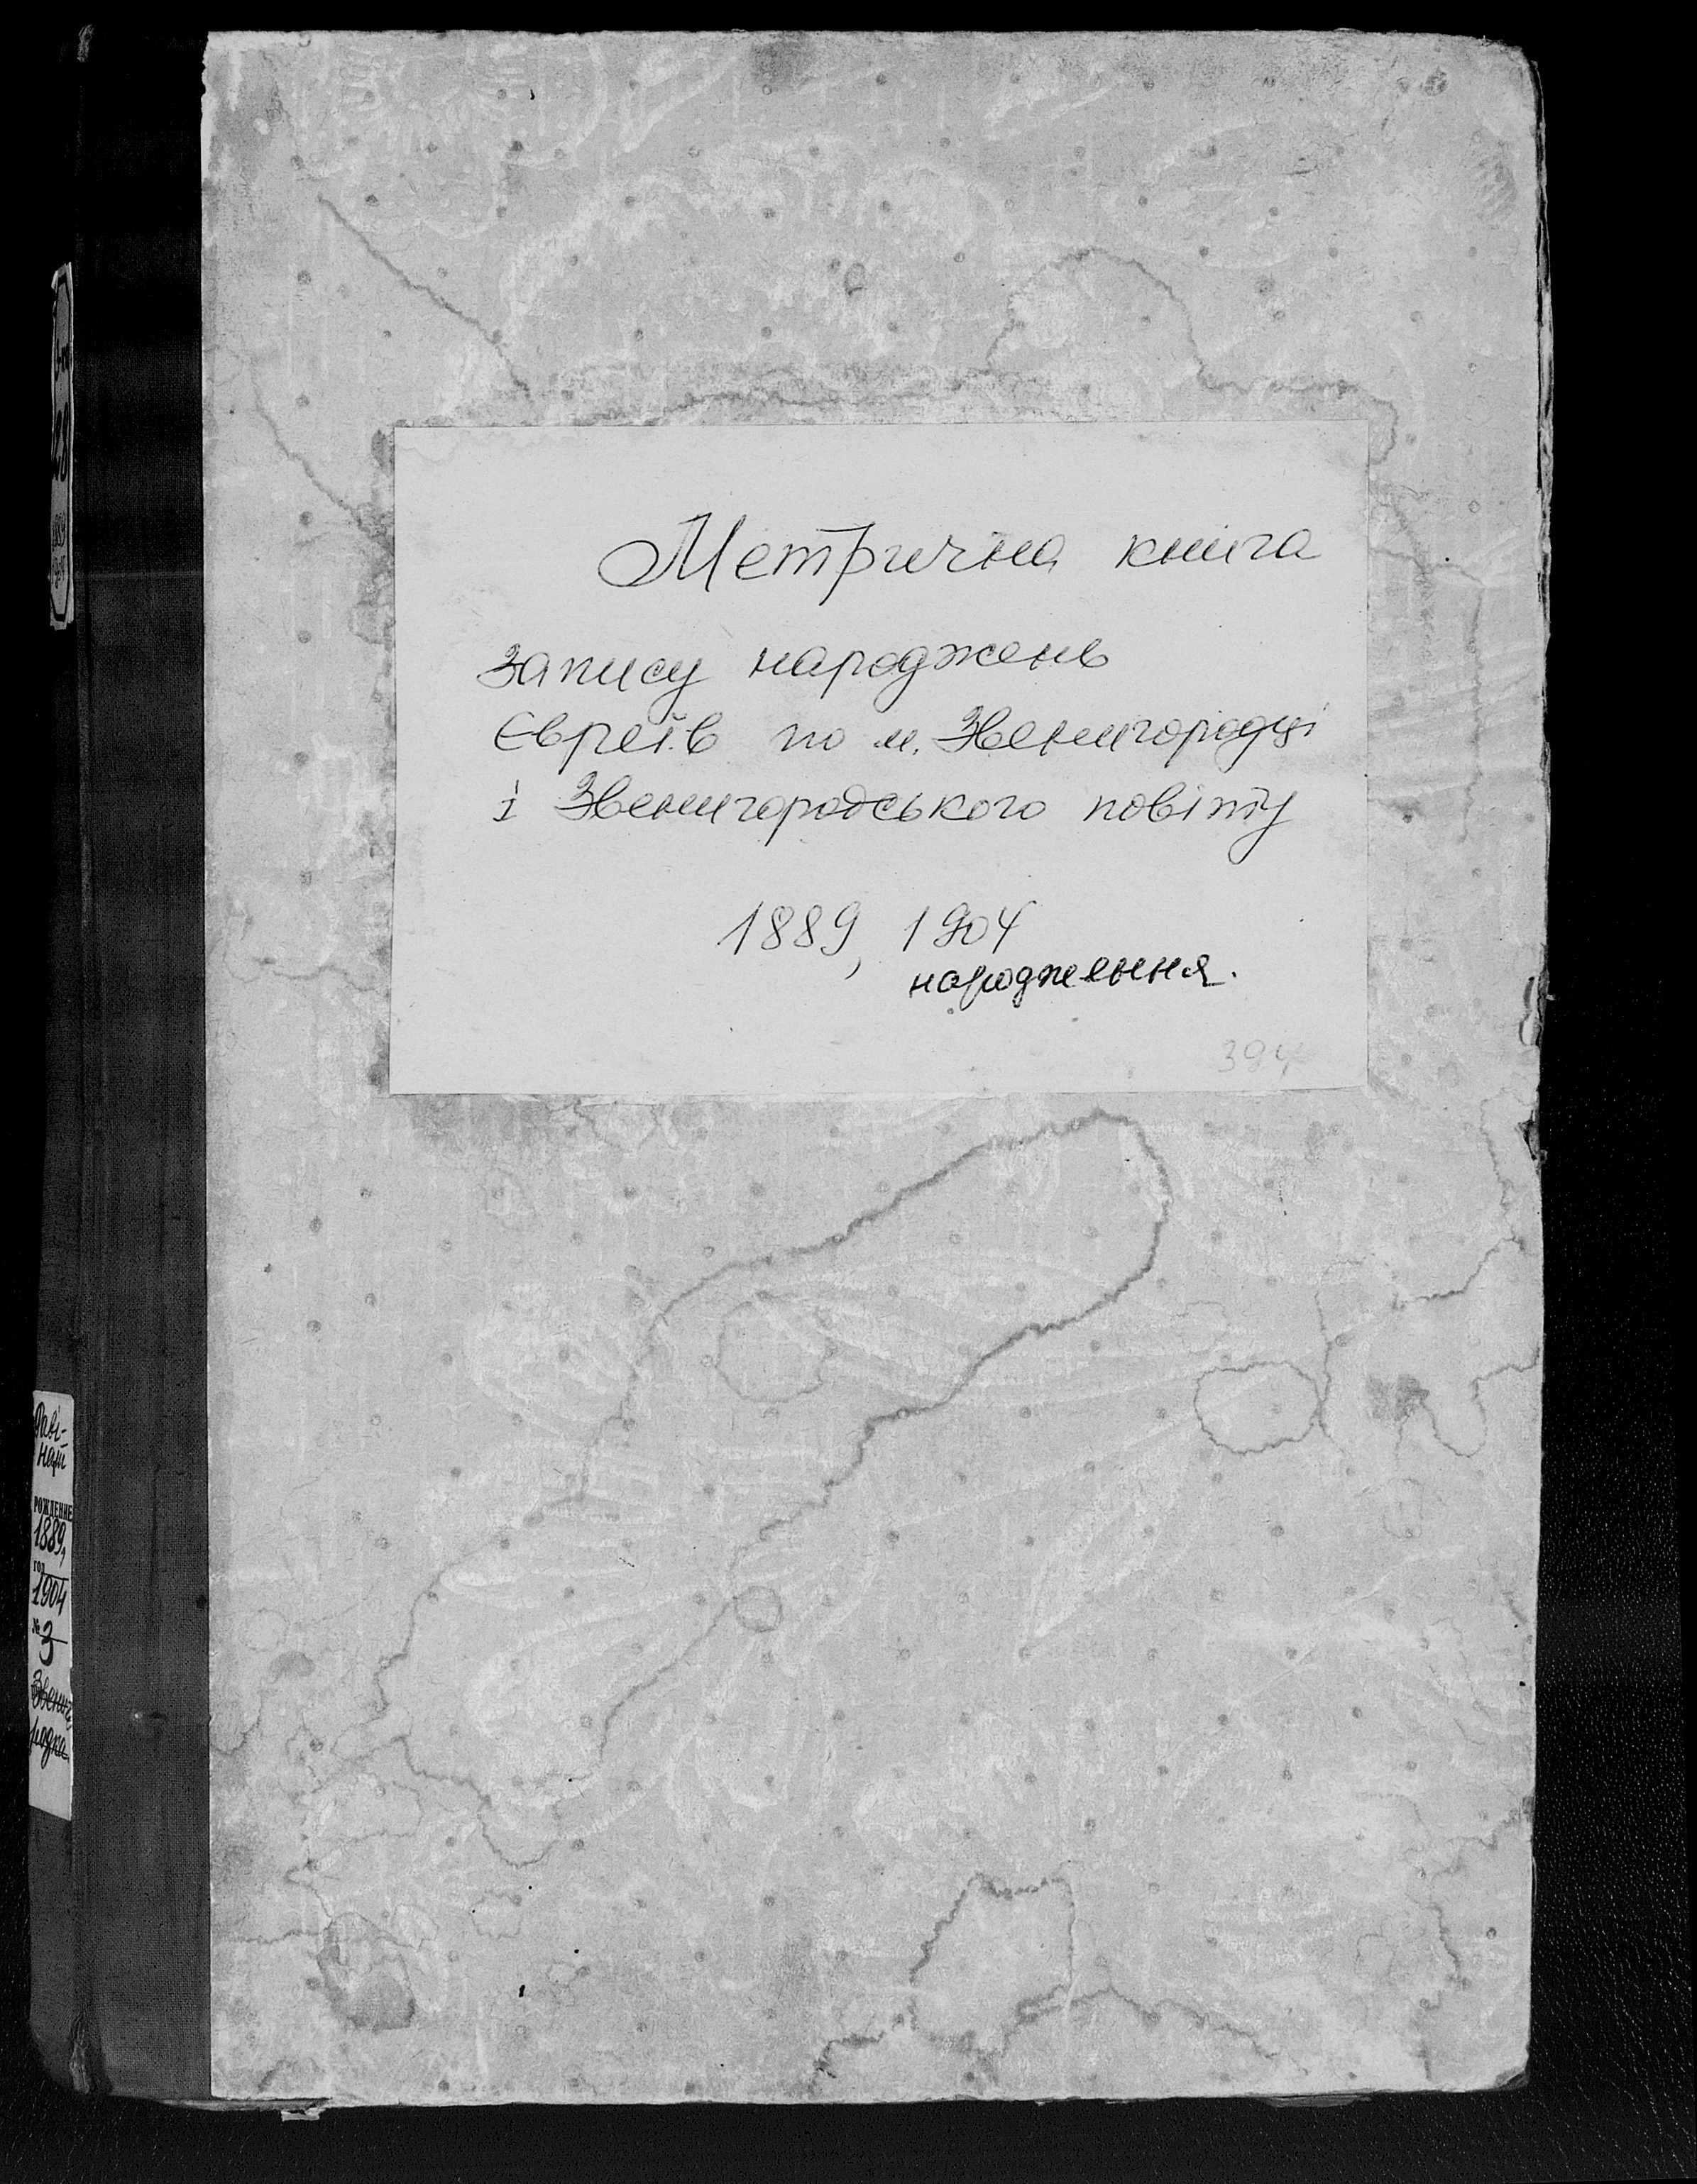 Метрична книга
запису народжень
Євреїв по м. Звенигородці
і Звенигородського повіту
1889, 1904
народження.
394
Раві-
нат
РОЖДЕНИЕ
1889,
год
1904
№
3
Звениго
родка